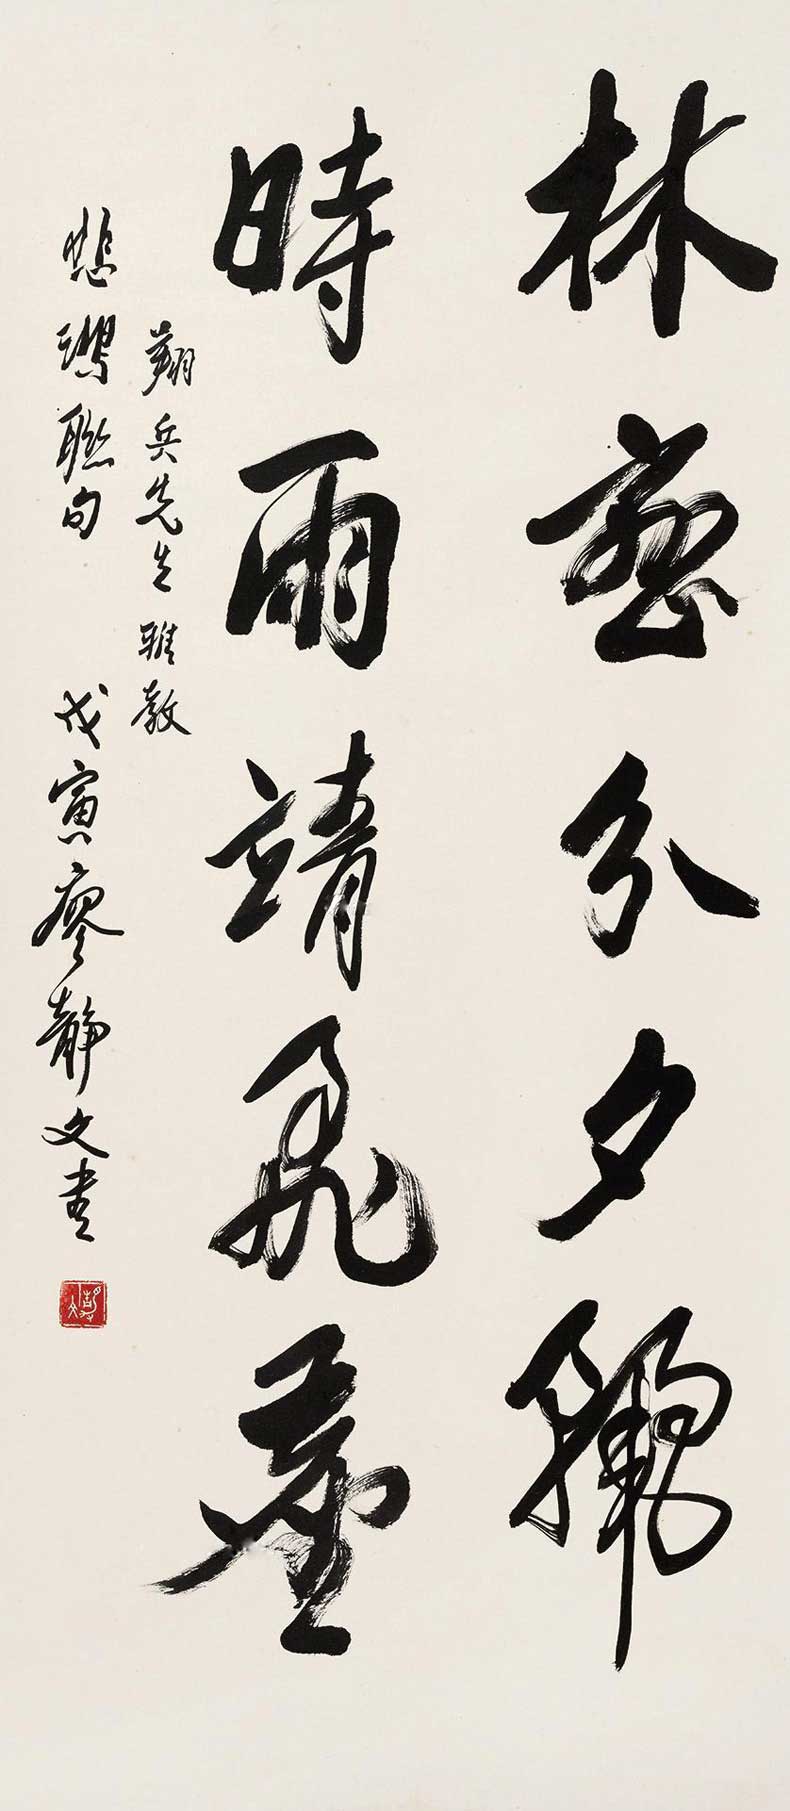 林壑分夕霽
時雨靖飛塵
翔兵先生雅教
悲鴻聯句 戊寅廖靜文書